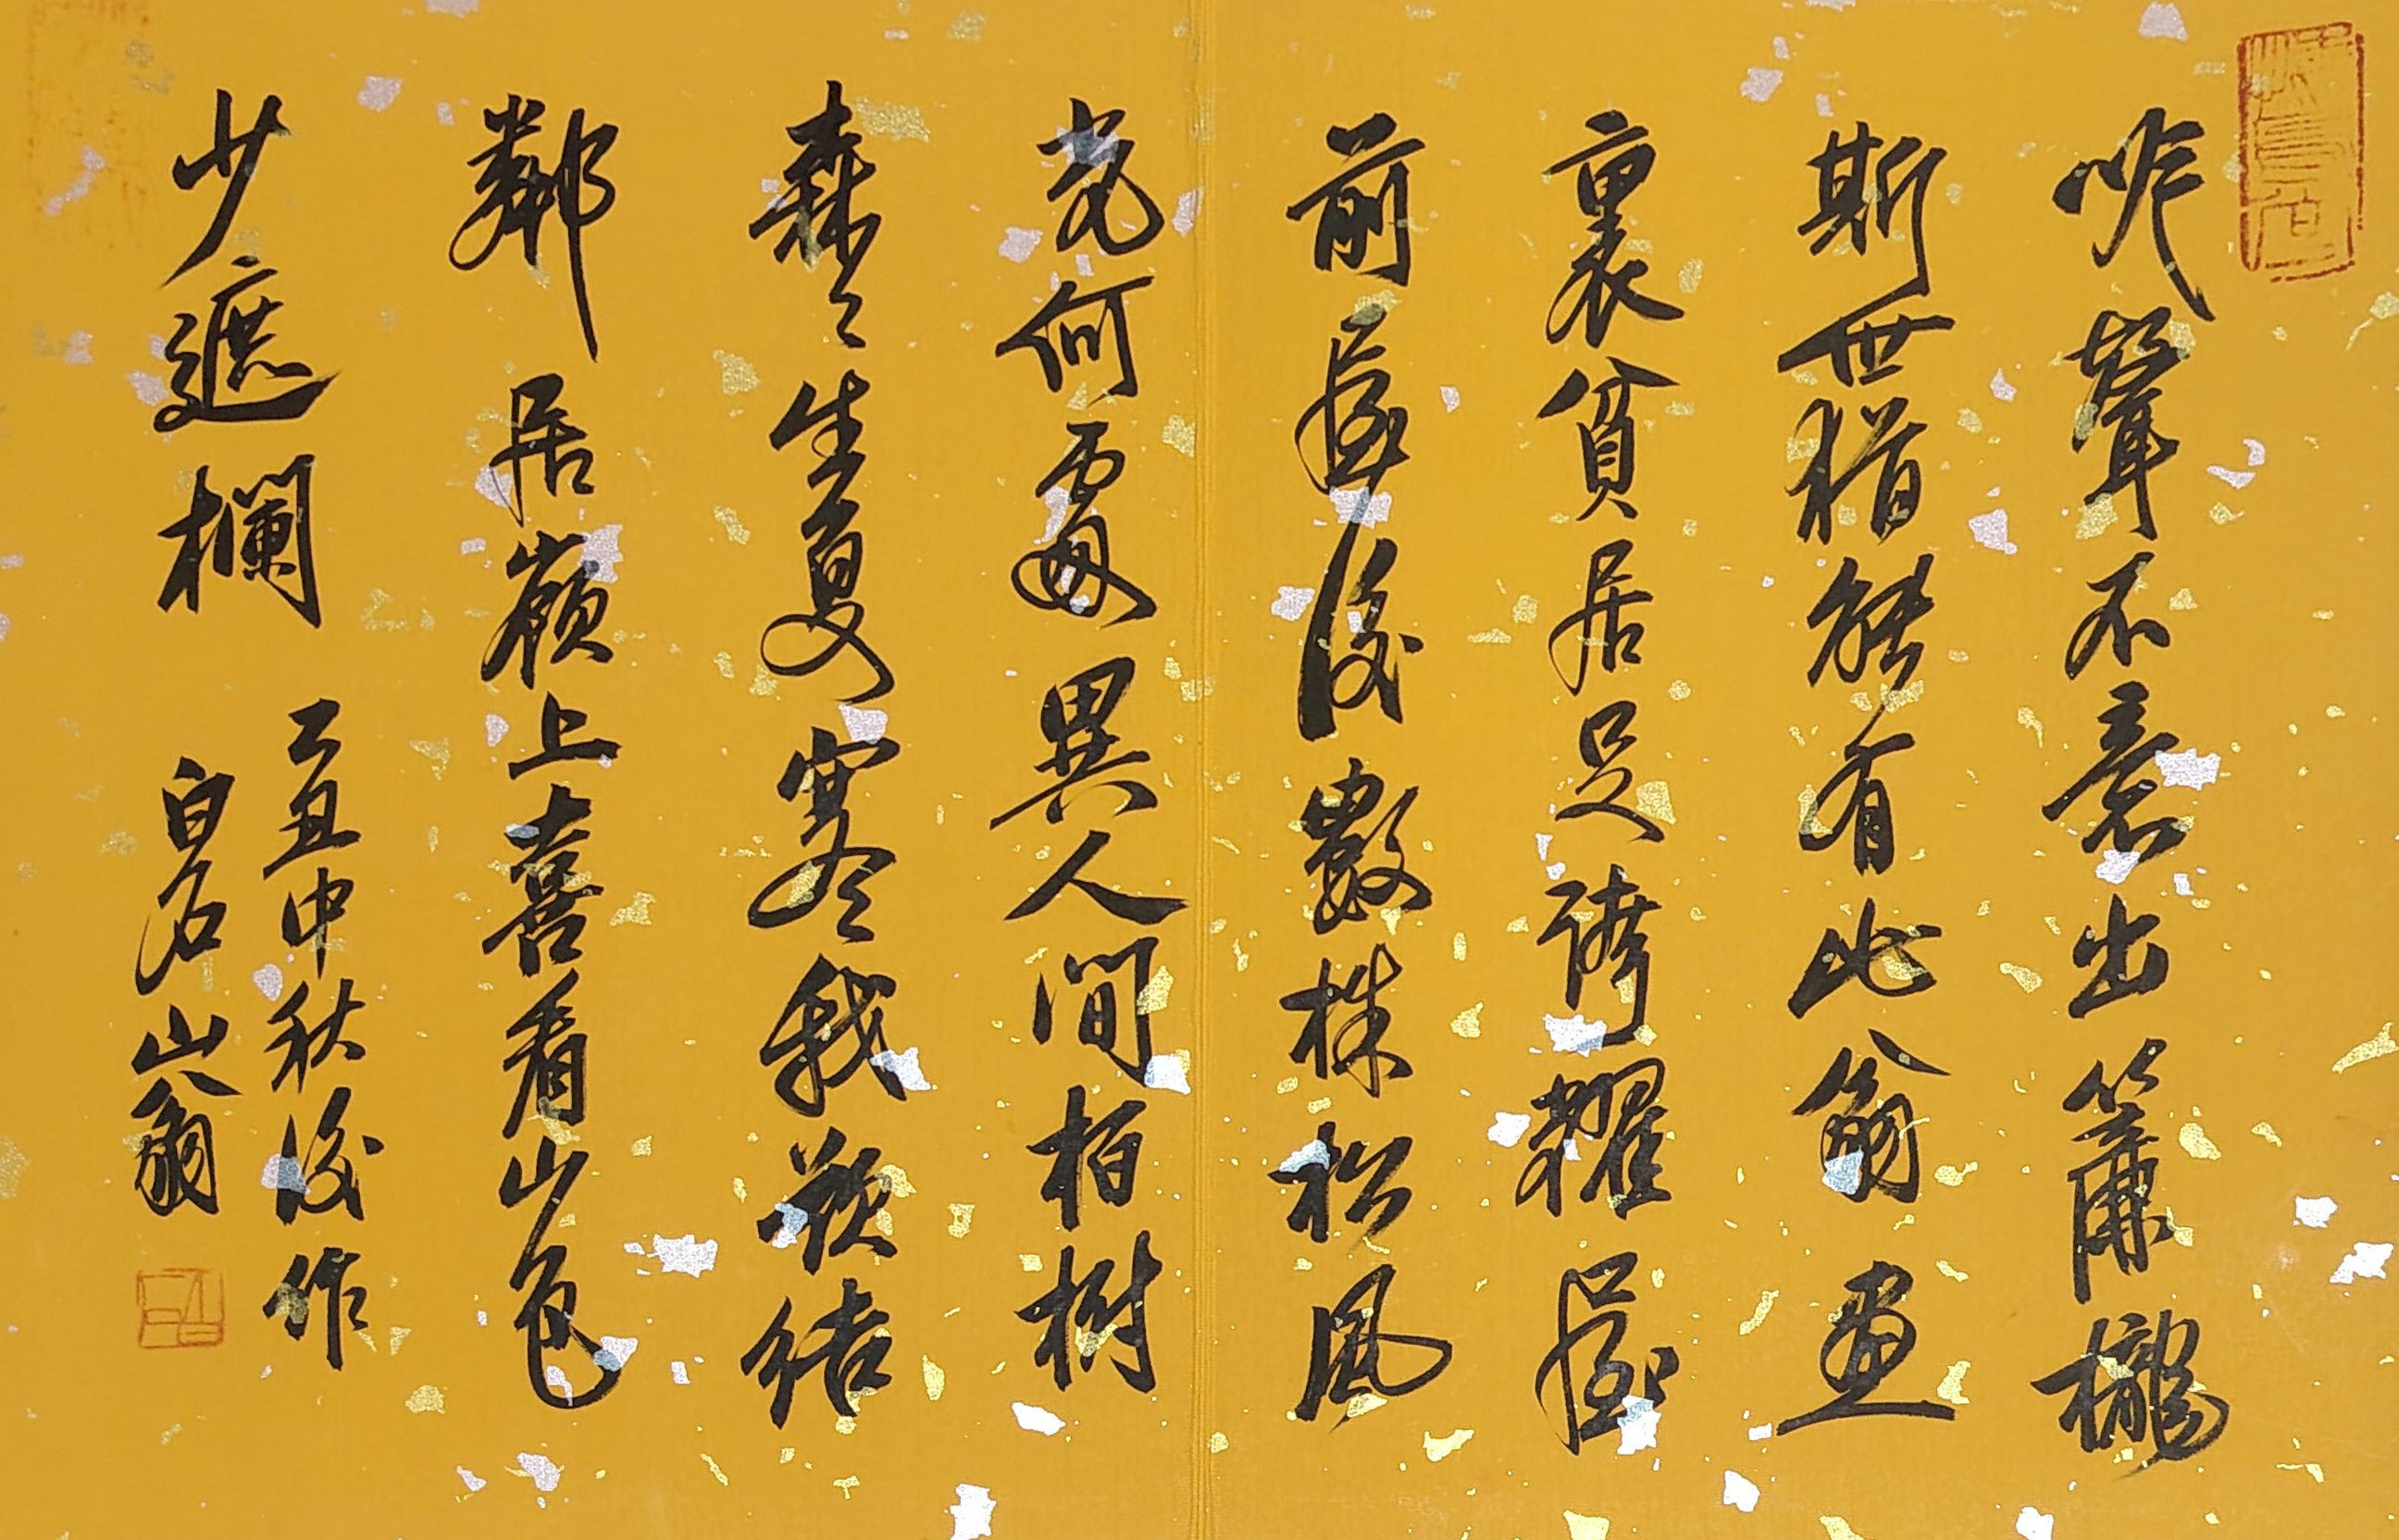 咋聲不意出簾櫳
斯世猶能有此翁畫
裏貧居足誇耀屋
前屋後數株松風
光何處異人間栢樹
森々生夏寒我欲結
鄰居嶺上喜看山色
少遮欄
乙丑中秋後作
白石山翁